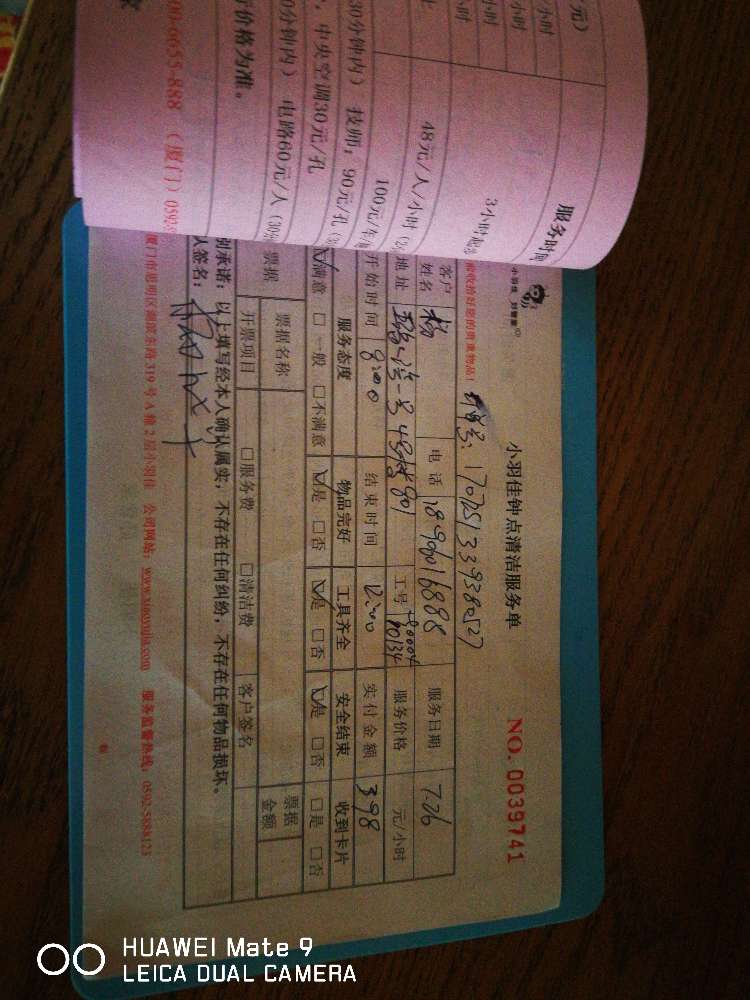 元）
小时
小时
小时
小时
服务时间
3小时起
48元/人/小时
100元/
30分钟内） 技师：90元/孔
，中央空调30元/孔
0分钟内） 电路60元/人
价格为准。
00-6655-888 （厦门）0592
小羽佳钟点清洁服务单
NO. 0039741
收拾好您的贵重物品！
单号：170751339380527
客户姓名 杨 电话 18960116888 服务日期 7.26
地址 一号 4号楼901 工号 80004 90134 服务价格 元/小时
开始时间 8:00 结束时间 12:00 实付金额 398
服务态度 物品完好 工具齐全 安全结束 收到卡片
☑满意 □一般 □不满意 ☑是 □否 ☑是 □否 ☑是 □否 □是 □否
票据 票据名称 票据金额
开票项目 □服务费 □清洁费 客户签名
承诺：以上填写经本人确认属实，不存在任何纠纷，不存在任何物品损坏。
人签名：
厦门市思明区湖滨东路319号A栋2层小羽佳 公司网站：www.xiaoyujia.com 服务监督热线：0592-5888123
HUAWEI Mate 9
LEICA DUAL CAMERA